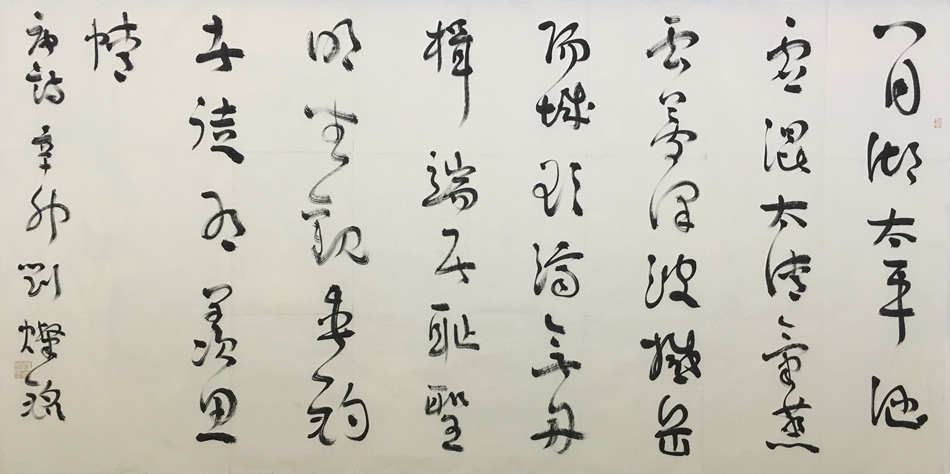 八月湖水平涵
虛混太清氣蒸
雲夢澤波撼岳
陽城欲濟無舟
楫端居恥聖
明坐觀垂釣
者徒有羨魚
情
唐詩 辛卯 劉燦銘